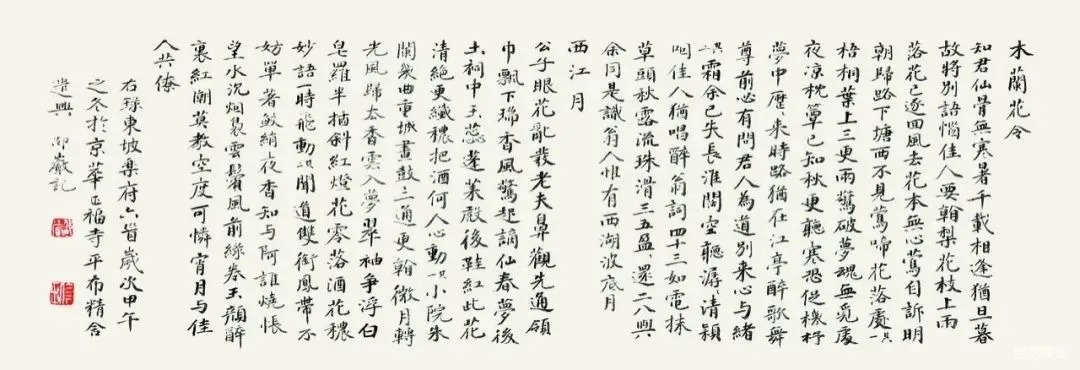 木蘭花令
知君仙骨無寒暑千載相逢猶旦暮
故將別語惱佳人要看梨花枝上雨
落花已逐回風去花本無心鶯自訴明
朝歸路下塘西不見鶯啼花落處又
梧桐葉上三更雨驚破夢魂無覓處
夜凉枕簟已知秋更聽寒蛩促機杼
夢中歷來時路猶在江亭醉歌舞
尊前必有問君人為道別來心与緒
又霜余已失長淮闊空聽潺清潁
咽佳人猶唱醉翁詞四十三如電抹
草頭秋露流珠滑三五盈還二八與
余同是識翁人惟有西湖波底月
西江月
公子眼花亂發老夫鼻觀先通領
巾飄下瑞香風驚起謫仙春夢後
土祠中玉蕊蓬萊殿後鞓紅此花
清絕更纖穠把酒何人心動又小院朱
闌幾曲重城畫鼓三通更看微月轉
光風歸去香雲入夢翠袖爭浮白
皂羅半插斜紅燈花零落酒花穠
妙語一時飛動又聞道雙銜鳳帶不
妨單著鮫綃夜香知与阿誰燒悵
望水沉烟裊雲鬢風前綠卷玉顏醉
裏紅潮莫教空度可憐宵月与佳
人共僚
右録東坡樂府六首歲次甲午
之冬於京華正福寺平布精舍
遣興 邱巖記